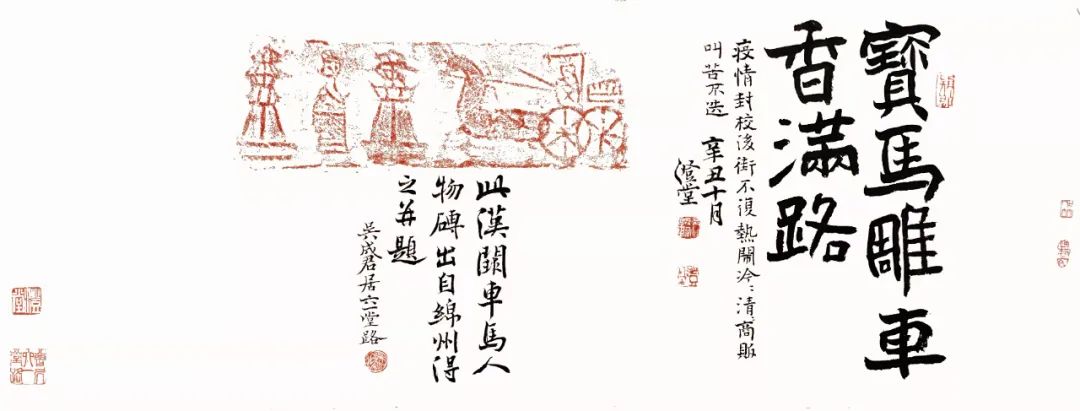 寶馬雕車
香滿路
疫情封校後街不復熱鬧冷〻清〻商販
叫苦不迭 辛丑十月
澄堂
此漢闕車馬人
物磚出自綿州得
之并題
吴成君居六一堂路